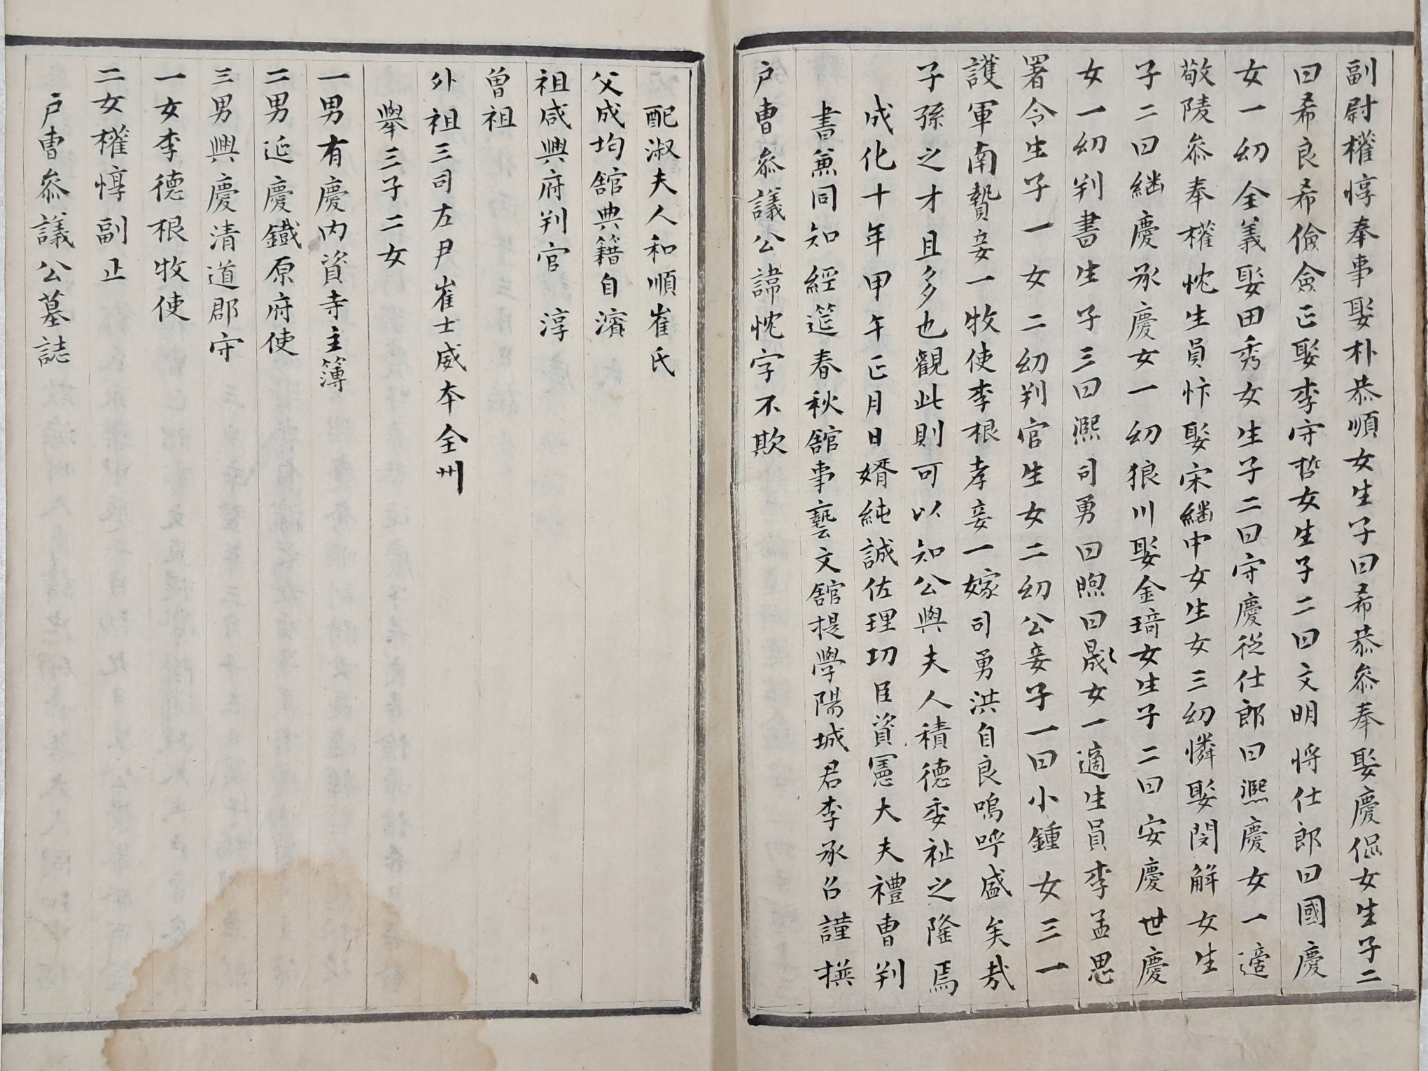 副尉權惇奉事娶朴恭順女生子曰希恭叅奉娶慶侃女生子二
曰希良希儉僉正娶李守哲女生子二曰文明将仕郎曰國慶
女一幼全義娶田秀女生子二曰守慶從仕郎曰熙慶女一適
敬陵叅奉權忱生員忭娶宋繼中女生女三幼憐娶閔解女生
子二曰繼慶承慶女一幼狼川娶金琦女生子二曰安慶世慶
女一幼判書生子三曰熙司勇曰煦曰晟女一適生員李孟思
署令生子一女二幼判官生女二幼公妾子一曰小鍾女三一
護軍南贄妾一牧使李根孝妾一嫁司勇洪自良嗚呼盛矣哉
子孫之才且多也觀此則可以知公與夫人積德委祉之隆焉
成化十年甲午正月日婿純誠佐理功臣資憲大夫禮曹判
書兼同知經筵春秋館事藝文館提學陽城君李承召謹撰
戶曹叅議公諱忱字不欺
配淑夫人和順崔氏
父成均館典籍自濱
祖咸興府判官淳
曾祖
外祖三司左尹崔士威本全州
擧三子二女
一男有慶內資寺主簿
二男延慶鐵原府使
三男興慶清道郡守
一女李德根牧使
二女權惇副正
戶曹叅議公墓誌